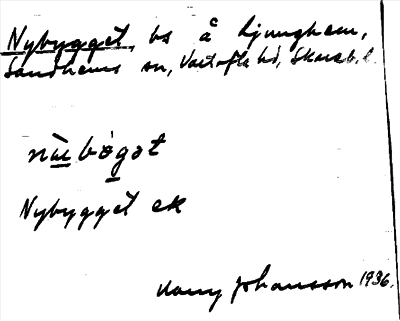 Nybygget, bs å Ljunghem,
Sandhems sn, Vartofta hd, Skarab. l.
Nybygget ek
Harry Johansson 1936.